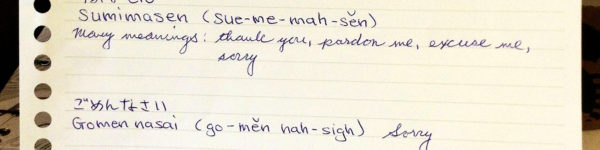 Sumimasen (sue-me-mah-sĕn)
Many meanings: thank you, pardon me, excuse me,
sorry
ごめんなさい
Gomen nasai (go-mĕn nah-sigh) Sorry